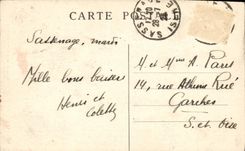 CARTE POS
Sassenage, mardi
Mille bons baisers
Henri et
Colette
M et Mme A. Paris
14, rue Athime Rué
Garches
S. et Oise